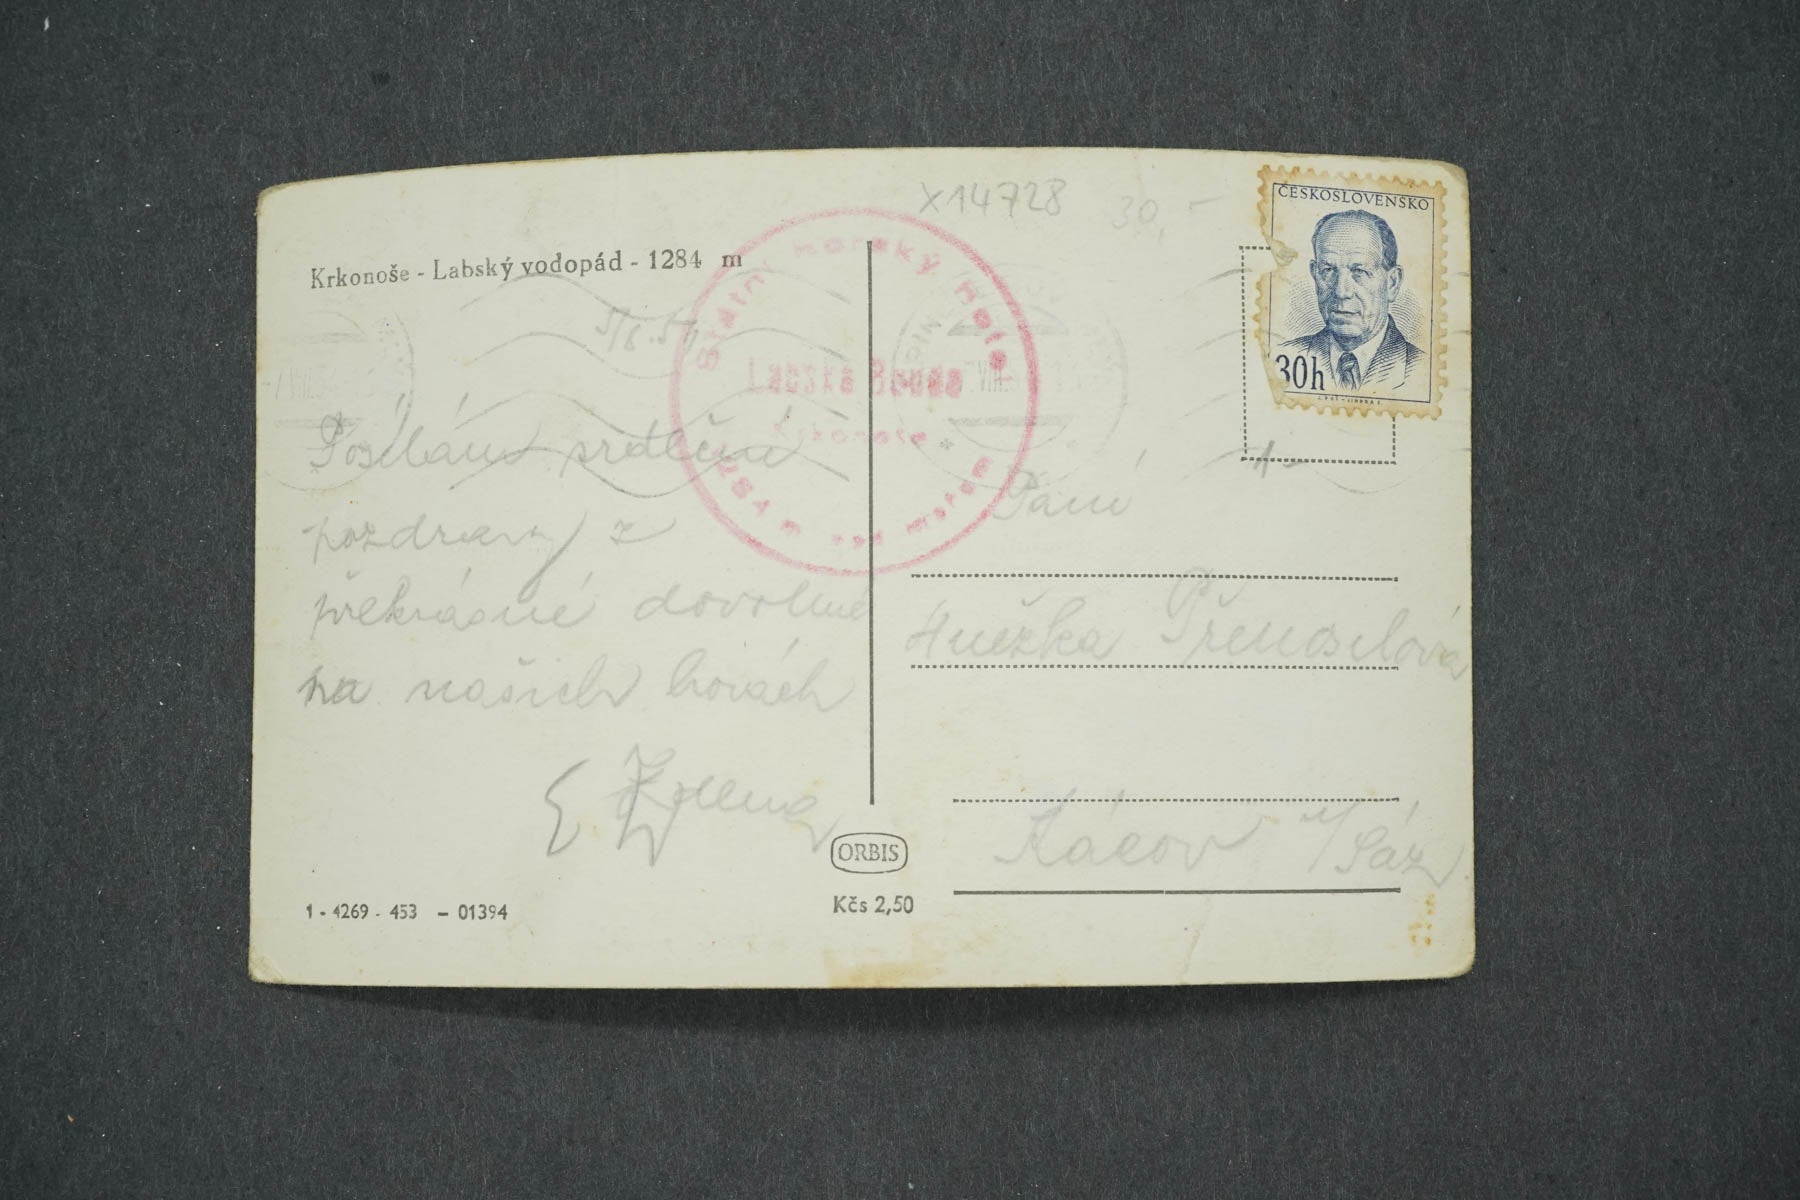 x14728 30,-
ČESKOSLOVENSKO
30h
Krkonoše - Labský vodopád - 1284 m
Státní Horský Hotel
Labská Bouda
Krkonoše
1284 m nad mořem
Posílám srdečné
pozdravy z
překrásné dovolené
na našich horách
Zdena
Paní
Anežka Přenosilová
Kácov n/Sáz.
ORBIS
Kčs 2,50
1 - 4269 - 453 - 01394